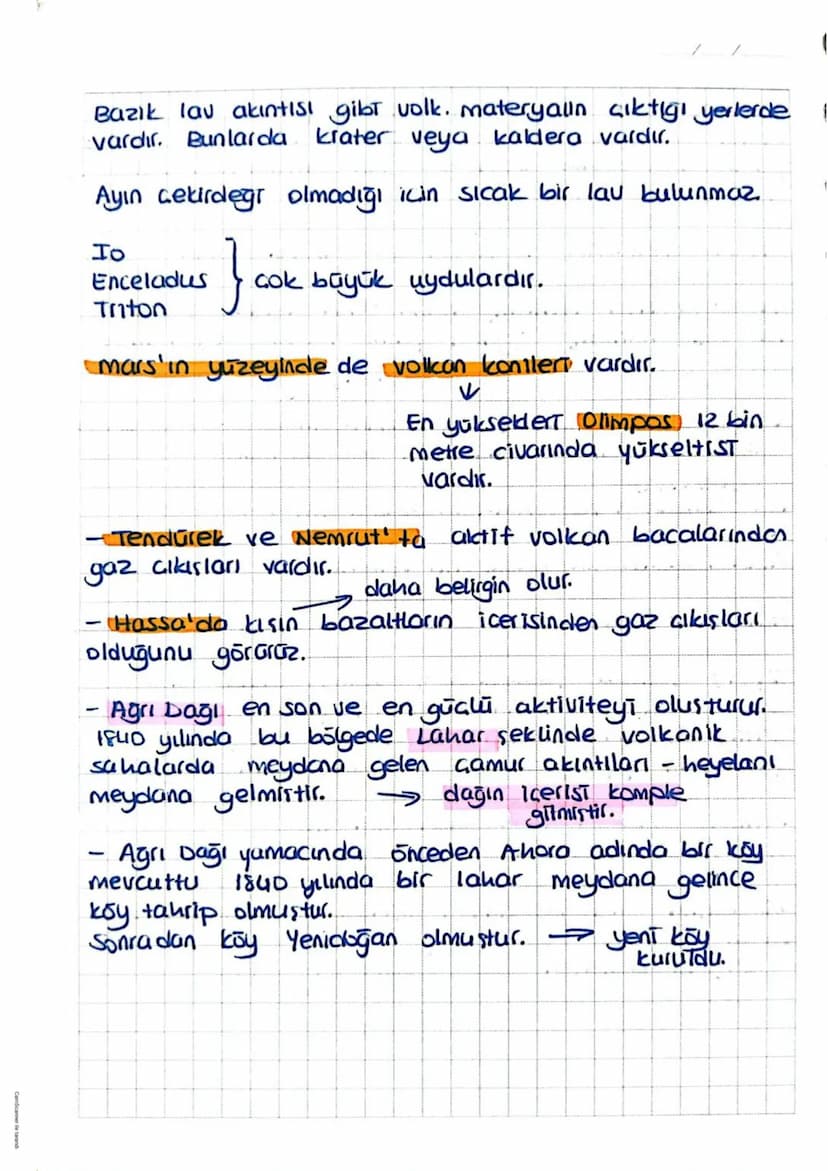 Bazik lav akıntısı gibi volk. materyalin çıktığı yerlerde
vardır. Bunlarda krater veya kaldera vardır.
Ayın çekirdeği olmadığı için sıcak bir lav bulunmaz
Io
Enceladus
Triton
} çok büyük uydulardır.
Mars'ın yüzeyinde de volkan konileri vardır.
↓
En yüksekleri Olimpos 12 bin
metre civarında yükseltisi
vardır.
- Tendürek ve Nemrut'ta aktif volkan bacalarından
gaz çıkışları vardır.
→ daha belirgin olur.
- Hassa'da kışın bazaltların içerisinden gaz çıkışları
olduğunu görürüz.
- Ağrı Dağı en son ve en güçlü aktiviteyi oluşturur.
1840 yılında bu bölgede Lahar şeklinde volkanik
sahalarda meydana gelen çamur akıntıları - heyelanı
meydana gelmiştir. → dağın içerisi komple
gitmiştir.
- Ağrı Dağı yamacında önceden Ahora adında bir köy
mevcuttu 1840 yılında bir lahar meydana gelince
köy tahrip olmuştur.
Sonradan köy Yenidoğan olmuştur. → yeni köy
kuruldu.
CamScanner ile tarandı